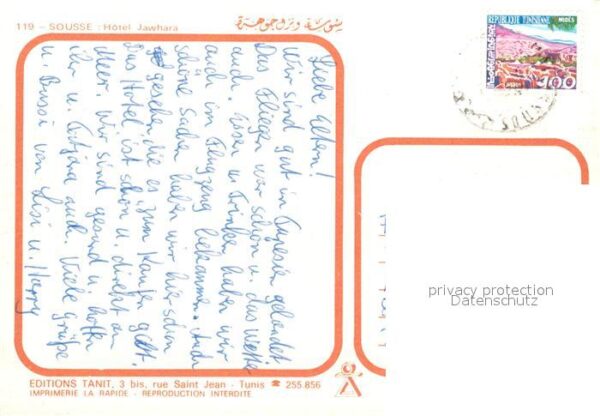 119 – SOUSSE : Hôtel Jawhara
REPUBLIQUE TUNISIENNE
MIDÈS
100
Liebe Eltern!
Wir sind gut in Tunesien gelandet.
Das Fliegen war schön u. das Wetter
auch. Essen u. Trinken haben wir
auch im Flugzeug bekommen. Auch
schöne Sachen haben wir hier schon
gesehen, die es zum Kaufen gibt.
Das Hotel ist schön u. direkt am
Meer. Wir sind gesund u. hoffen
ihr u. auch. Viele Grüße
u. Bussi von Sisi u. Harry
privacy protection
Datenschutz
EDITIONS TANIT, 3 bis, rue Saint Jean - Tunis ☎ 255.856
IMPRIMERIE LA RAPIDE - REPRODUCTION INTERDITE